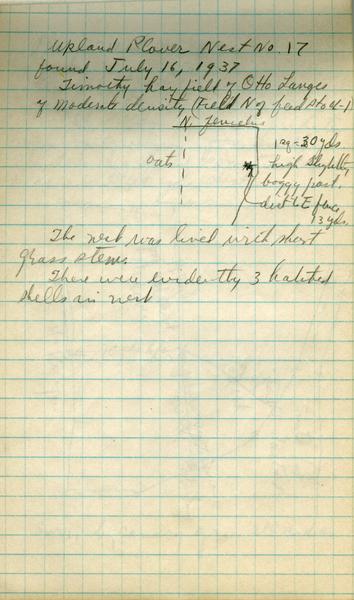 Upland Plover Nest No. 17
found July 16, 1937
Timothy hay field of Otto Langes
of moderate density (Field N of feed
N.
oats
1 sq = 30 yds
high slightly
boggy past.
dist to E fence
13 yds.
The nest was lined with short
grass stems
There were evidently 3 hatched
shells in nest